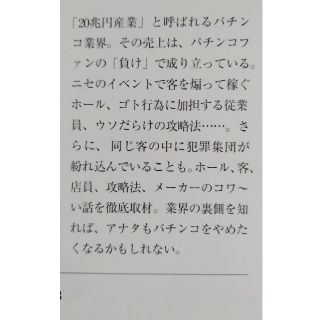 「20兆円産業」と呼ばれるパチン
コ業界。その売上は、パチンコフ
ァンの「負け」で成り立っている。
ニセのイベントで客を煽って稼ぐ
ホール、ゴト行為に加担する従業
員、ウソだらけの攻略法……。さ
らに、同じ客の中に犯罪集団が
紛れ込んでいることも。ホール、客、
店員、攻略法、メーカーのコワ〜
い話を徹底取材。業界の裏側を知
れば、アナタもパチンコをやめた
くなるかもしれない。